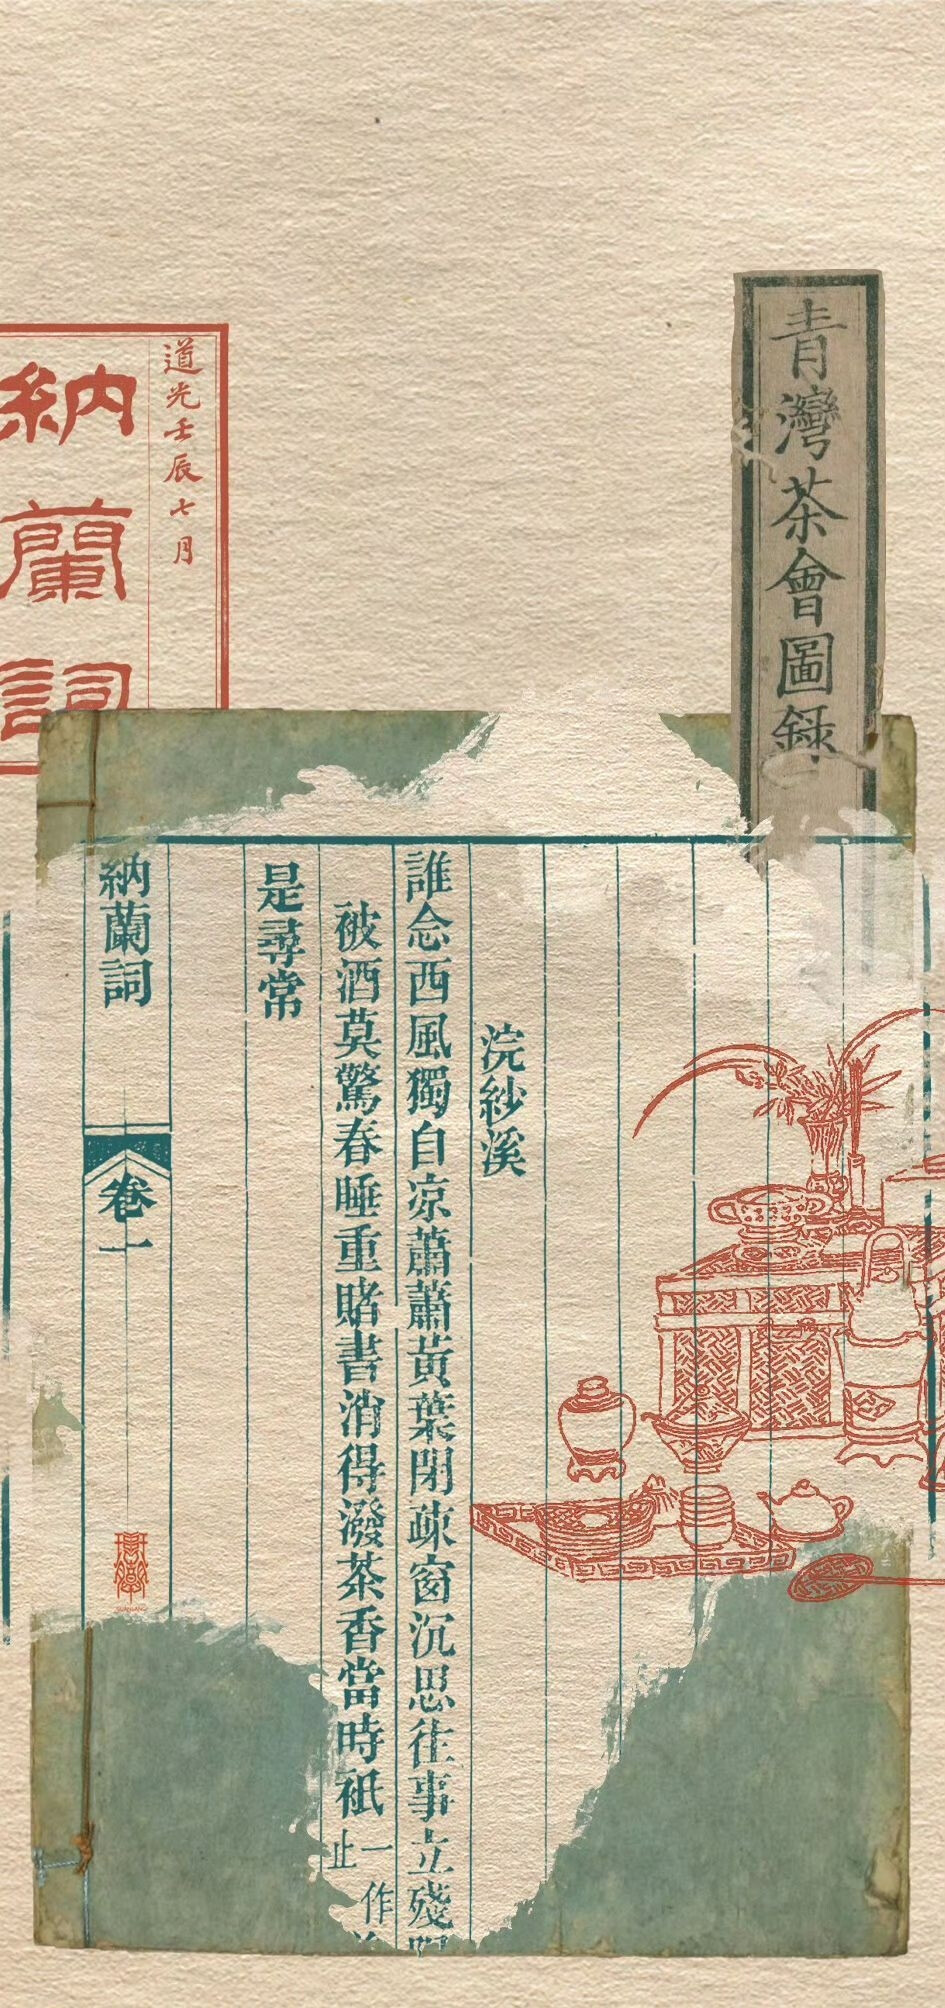 青灣茶會圖錄
道光壬辰七月
納蘭詞
浣紗溪
誰念西風獨自凉蕭蕭黃葉閉疎窗沉思往事立殘
被酒莫驚春睡重賭書消得潑茶香當時祇一作止
是尋常
納蘭詞
卷一